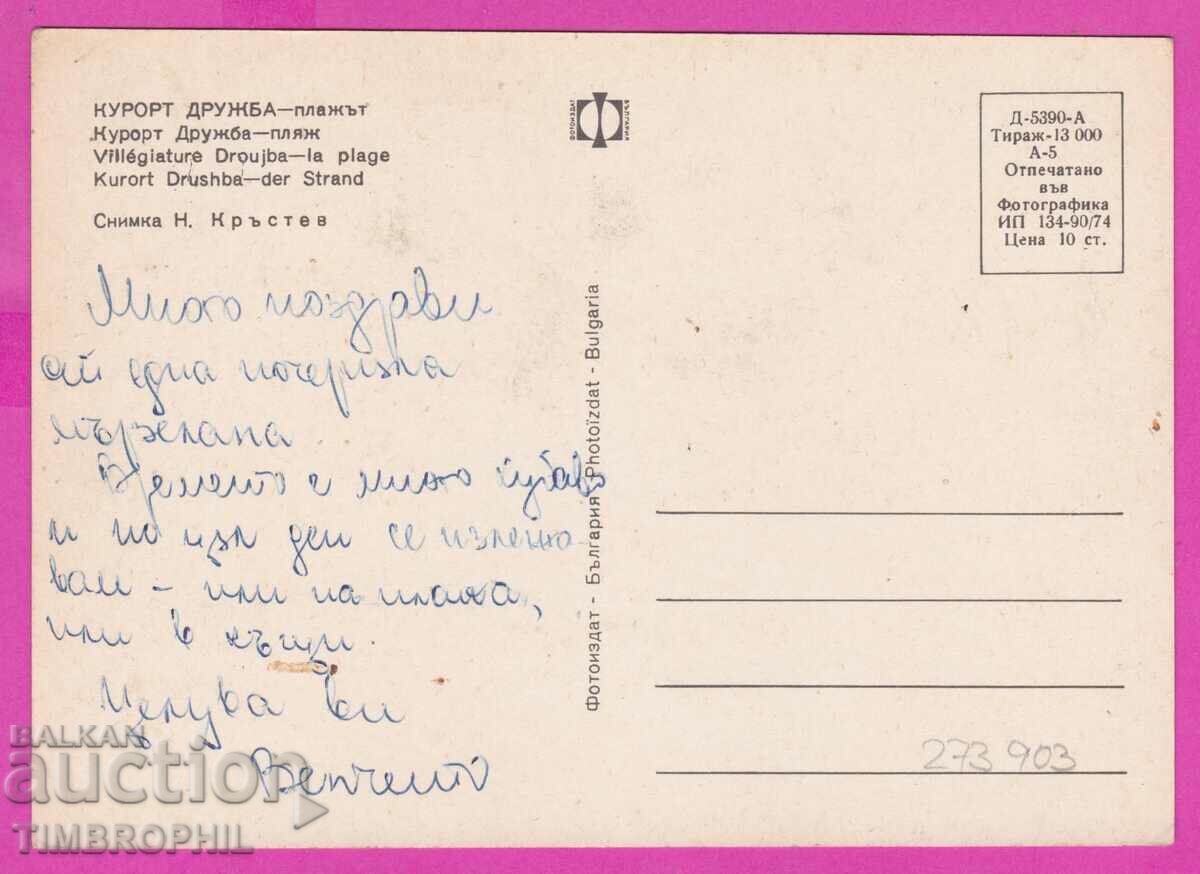 КУРОРТ ДРУЖБА—плажът
Курорт Дружба—пляж
Villégiature Droujba—la plage
Kurort Drushba—der Strand
Снимка Н. Кръстев
ФОТОИЗДАТ
БЪЛГАРИЯ
Д-5390-А
Тираж-13 000
А-5
Отпечатано
във
Фотографика
ИП 134-90/74
Цена 10 ст.
Много поздрави
от една почерняла
мързелана
Времето е много хубаво
и по цял ден се излежа-
вам – или на плажа,
или в къщи.
Целува ви
Венчето
Фотоиздат - България Photoïzdat - Bulgaria
273 903
BALKAN
auction
TIMBROPHIL